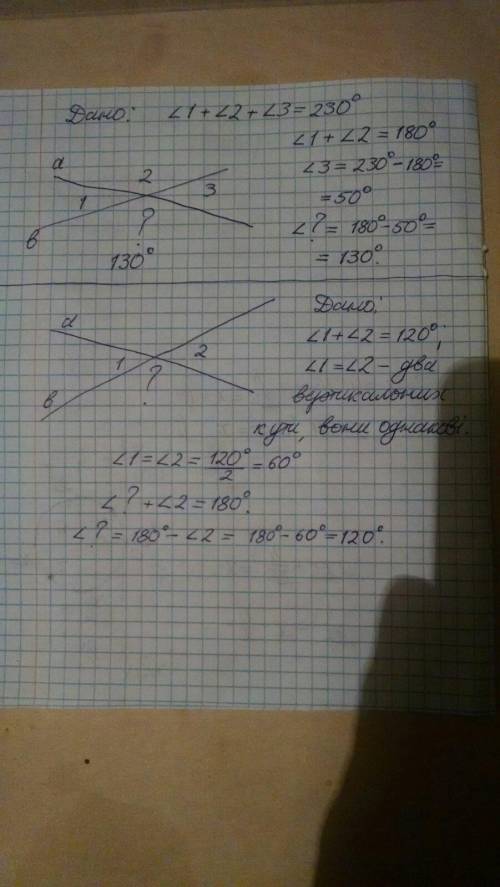 Дано: ∠1+∠2+∠3=230°
∠1+∠2=180°
∠3=230°-180°=
=50°
∠?=180°-50°=
=130°.
a
2
3
1
в
?
130°
Дано:
∠1+∠2=120°;
∠1=∠2 - два
вертикальних
кути, вони однакові.
a
1
2
в
?
∠1=∠2=120°/2=60°
∠?+∠2=180°.
∠?=180°-∠2=180°-60°=120°.